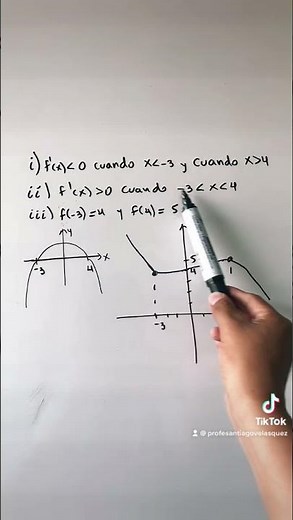 i) f'(x)<0 cuando x<-3 y cuando x>4
ii) f'(x)>0 cuando -3<x<4
iii) f(-3)=4 y f(4)=5
y
x
-3
4
5
4
-3
1
TikTok
@ profesantiagovelasquez